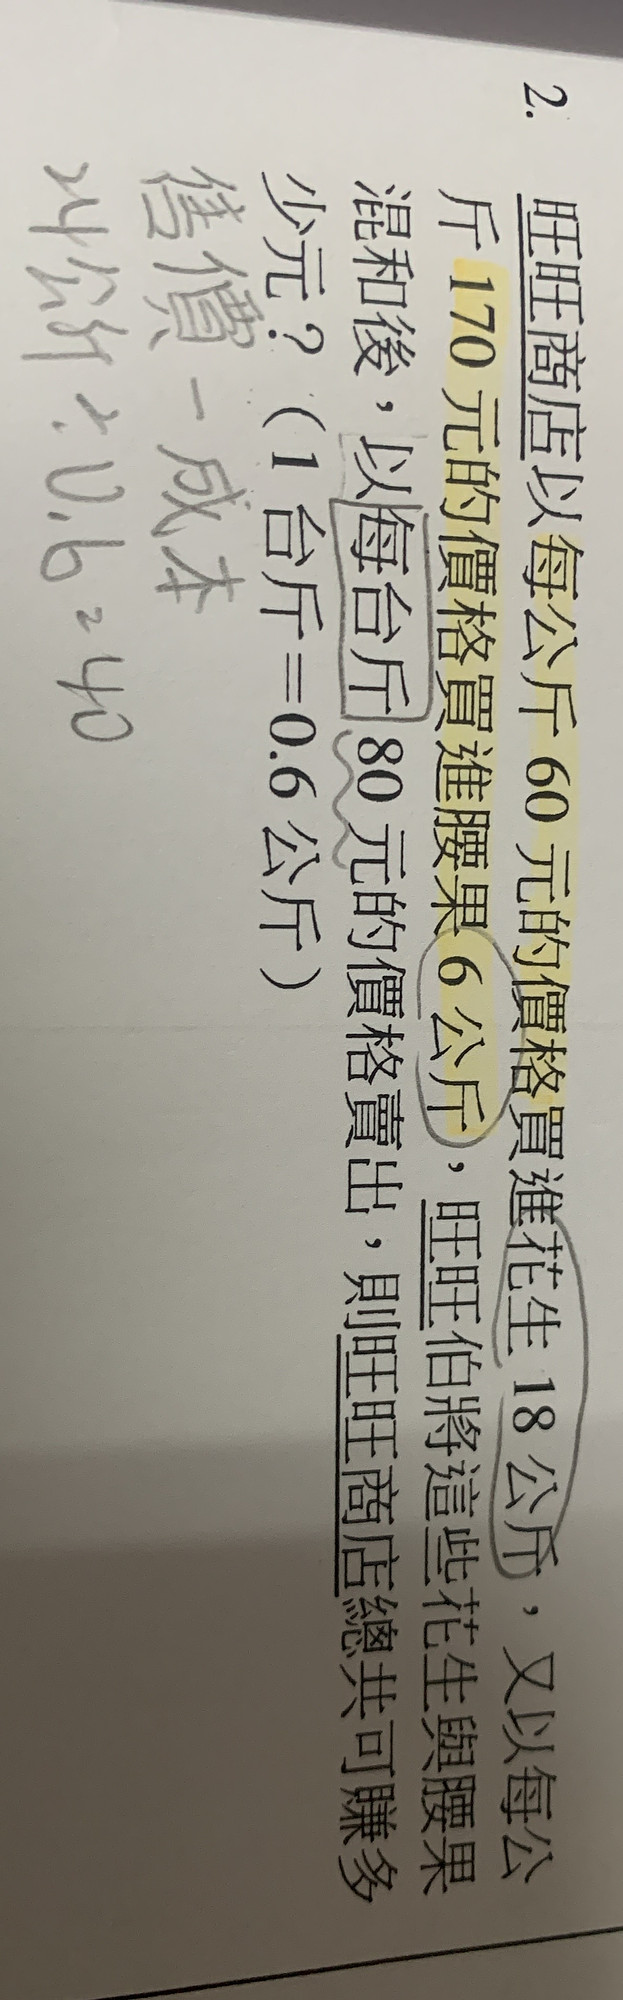 2. 旺旺商店以每公斤 60 元的價格買進花生 18 公斤，又以每公
斤 170 元的價格買進腰果 6 公斤，旺旺伯將這些花生與腰果
混和後，以每台斤 80 元的價格賣出，則旺旺商店總共可賺多
少元？（1 台斤=0.6 公斤）
售價－成本
24公斤÷0.6=40